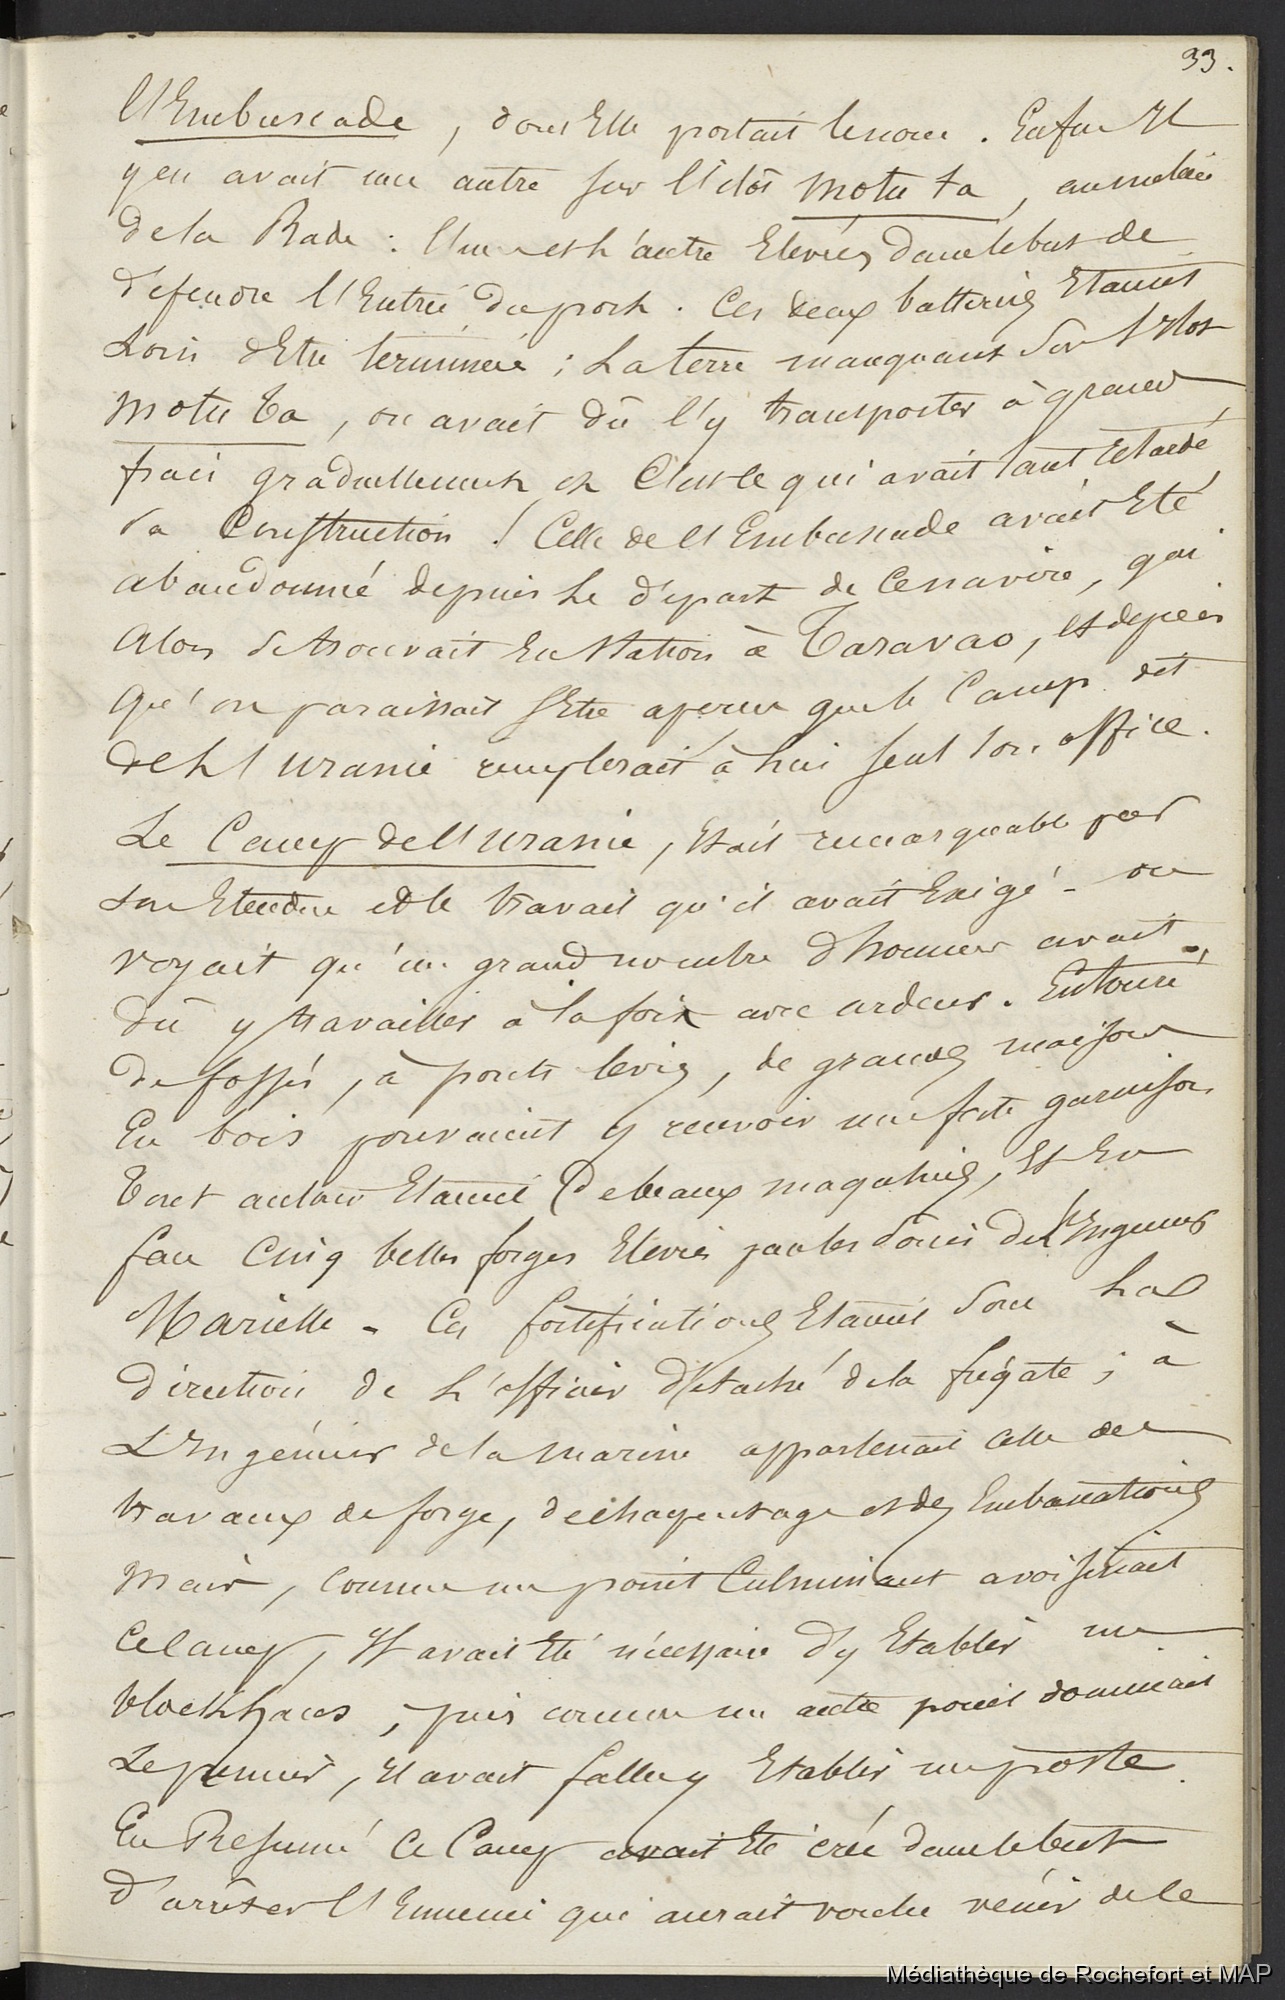 33.
l'Embuscade, dont Elle portait le nom. Enfin Il
y en avait une autre sur l'ilôt Motu ta, au milieu
de la Rade : l'une et l'autre Elevées dans le but de
défendre l'Entrée du port. Ces deux batteries Etaient
Loin d'Etre terminées ; La terre manquant sur l'Ilot
Motu Ta, on avait dû l'y transporter à grand
frais graduellement et C'est ce qui avait tant retardé
sa Construction. Celle de l'Embuscade avait Eté
abandonné depuis le départ de ce navire, qui
alors se trouvait En Station à Taravao, et depuis
qu'on paraissait s'Etre aperçu que le Camp dit
de l'Uranie remplirait à lui seul son office.
Le Camp de l'Uranie, Etait remarquable par
son Etendue et le travail qu'il avait Exigé - on
voyait qu'un grand nombre d'hommes avait
dû y travailler à la fois avec ardeur. Entouré
de fossés, à ponts levis, de grandes maisons
En bois pouvaient y recevoir une forte garnison.
Tout autour Etaient de beaux magasins, Et En
face Cinq belles forges Elevées par les soins de l'Ingenieur
Marielle - Ces fortifications Etaient sous la
direction de l'officier détaché de la frégate ; à
L'Ingénieur de la Marine appartenait celle des
travaux de forge, de charpentage et des Embarcations
Mais, comme un point Culminant avoisinait
ce Camp, Il avait Eté nécessaire d'y Etablir un
blockhaus, puis comme un autre point dominait
Le premier, Il avait fallu y Etablir un poste
En Resumé ce Camp avait Eté créé dans le but
d'arrêter l'Ennemi qui aurait voulu venir de le
Médiathèque de Rochefort et MAP